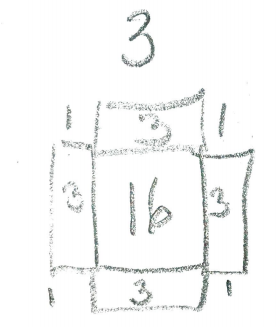 3
1 3 1
3 16 3
1 3 1